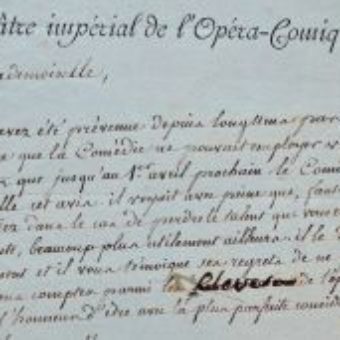 âtre impérial de l'Opéra-Comiq
ademoiselle,
avez été prévenue depuis longtems par
que la Comédie ne pouvait employer v
que jusqu'au 1er avril prochain le Com
elle cet avis. il voyait avec peine que, faute
dans le cas de perdre le talent que vous
beaucoup plus utilement ailleurs. il le
et il vous témoigne ses regrets de ne
compter parmi les Eleves de l'Op
l'honneur d'être avec la plus parfaite consid